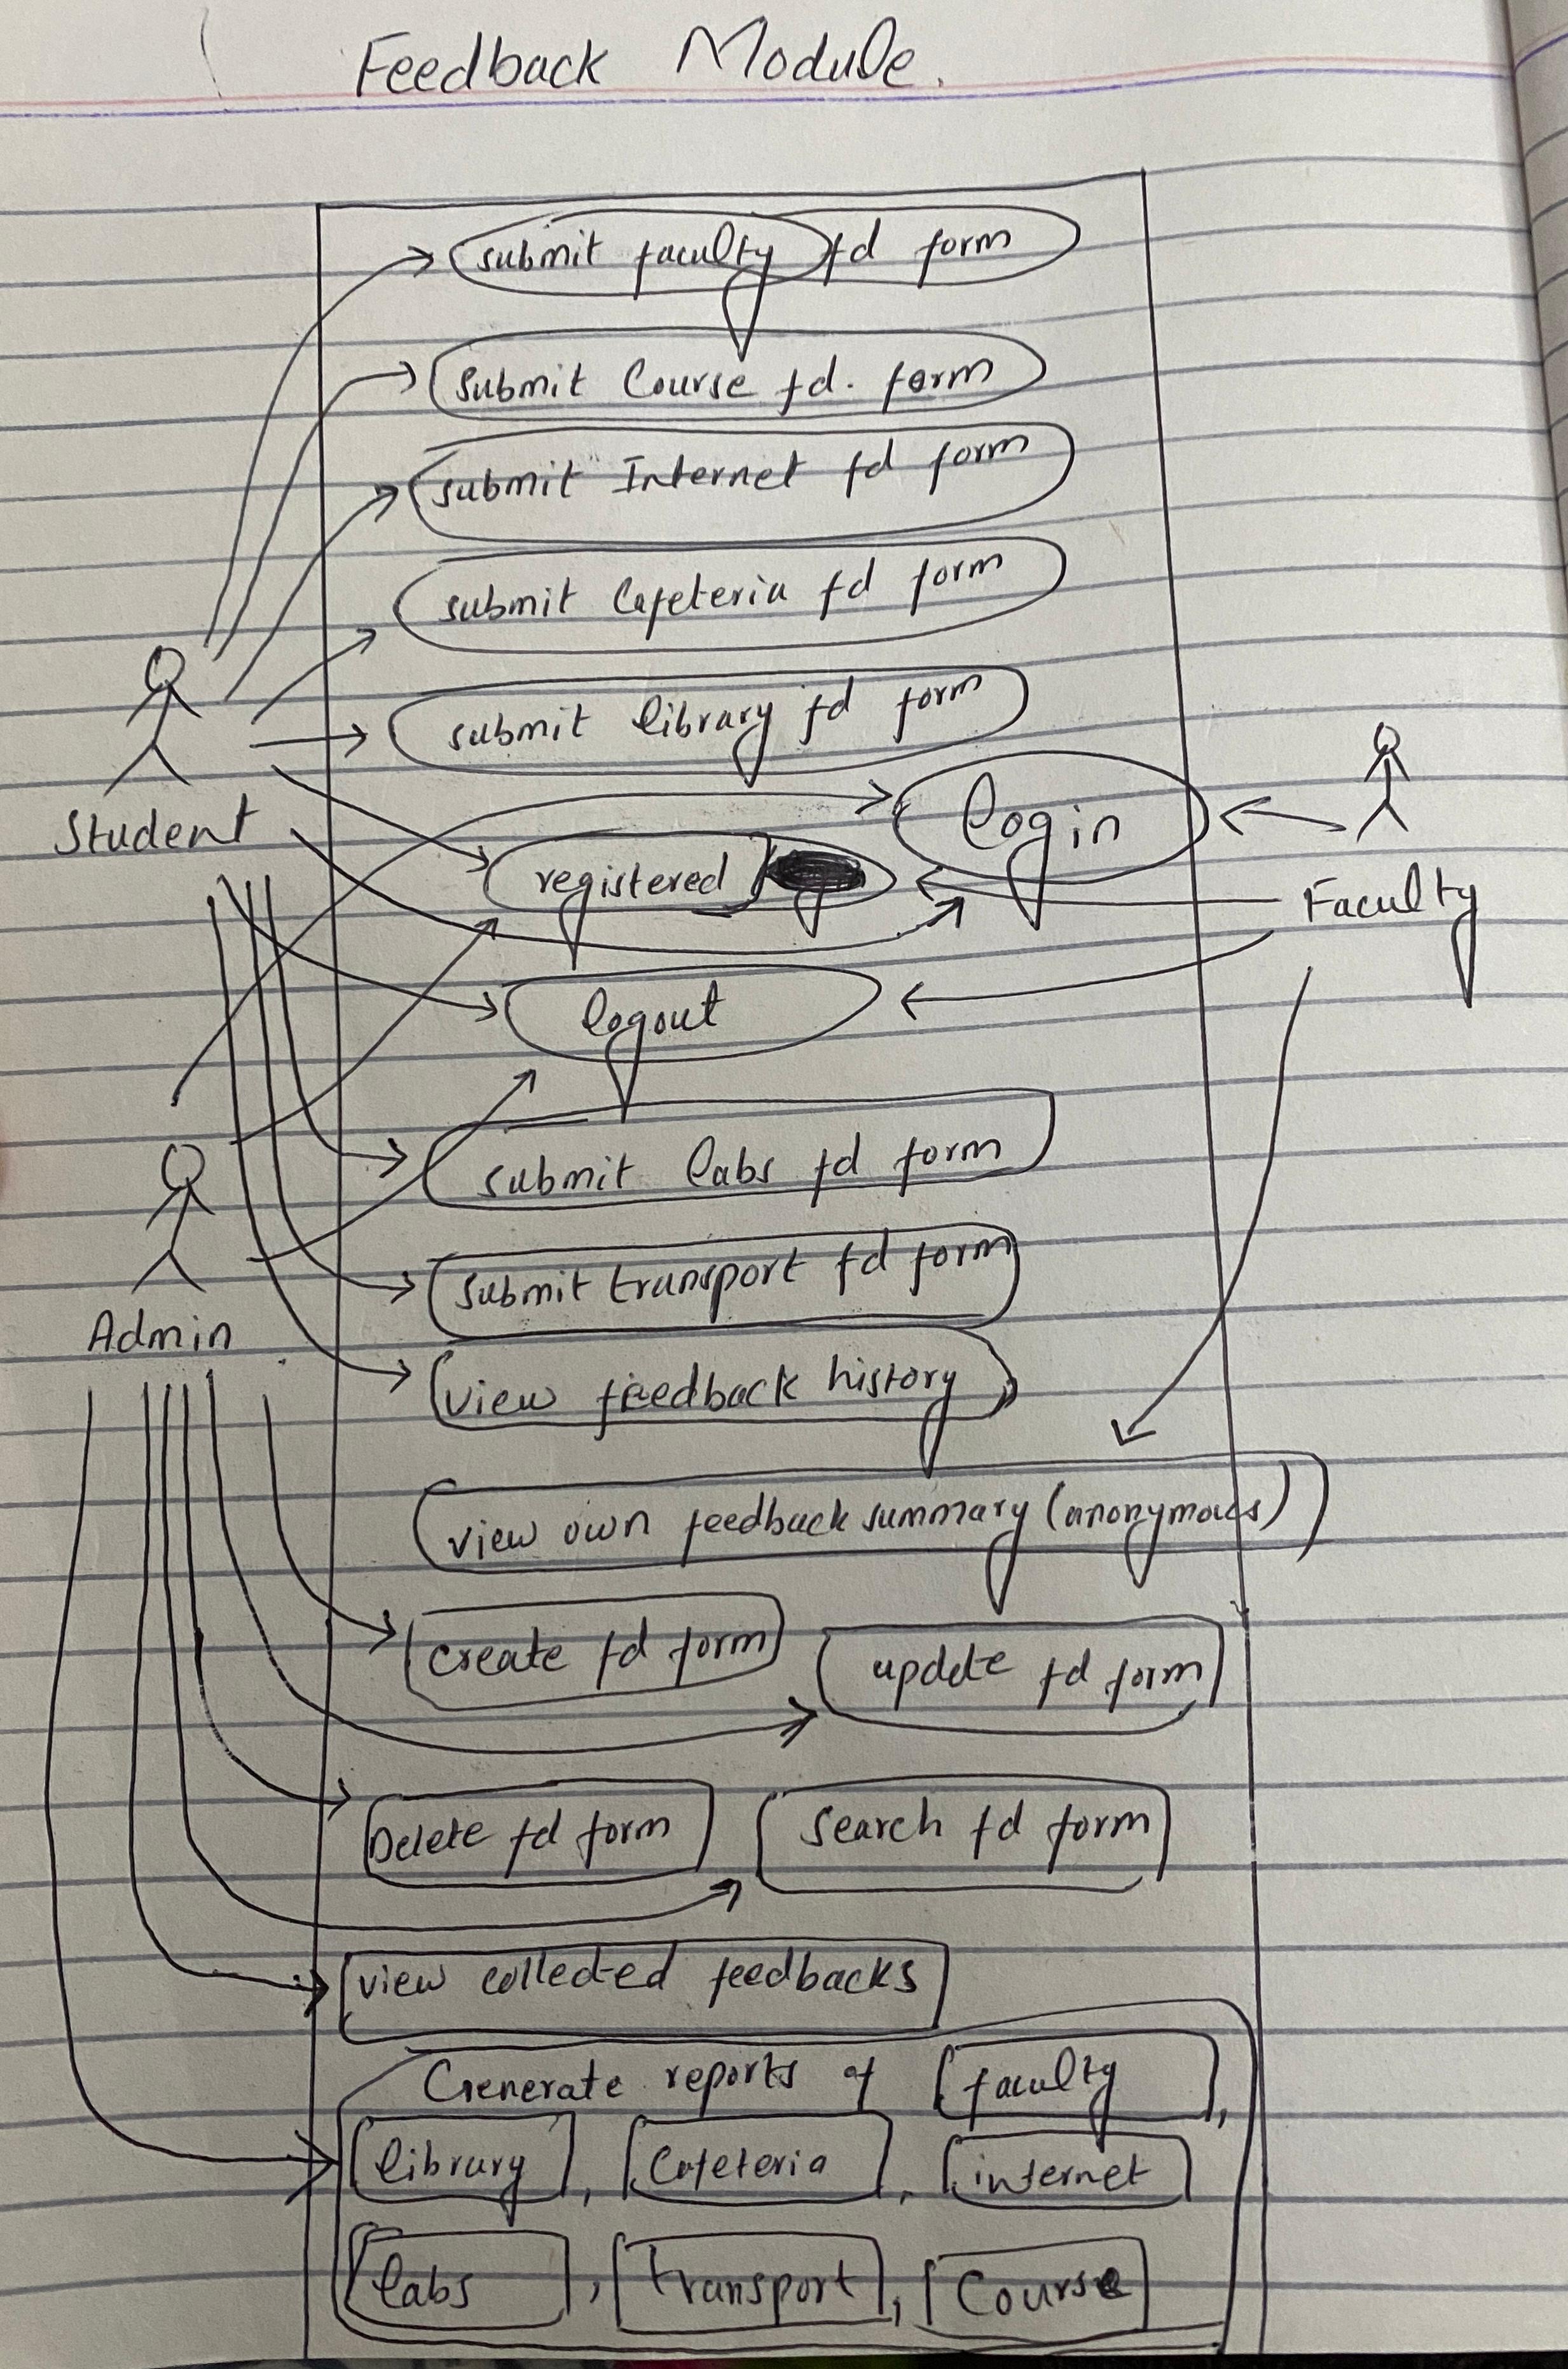 Feedback Module.
submit faculty fd form
submit Course fd. form
submit Internet fd form
submit Cafeteria fd form
submit library fd form
Student
login
registered
Faculty
logout
submit labs fd form
submit transport fd form
Admin
view feedback history
view own feedback summary (anonymous)
create fd form
update fd form
Delete fd form
Search fd form
view collected feedbacks
Generate reports of faculty,
library, Cafeteria, internet
labs, transport, Course